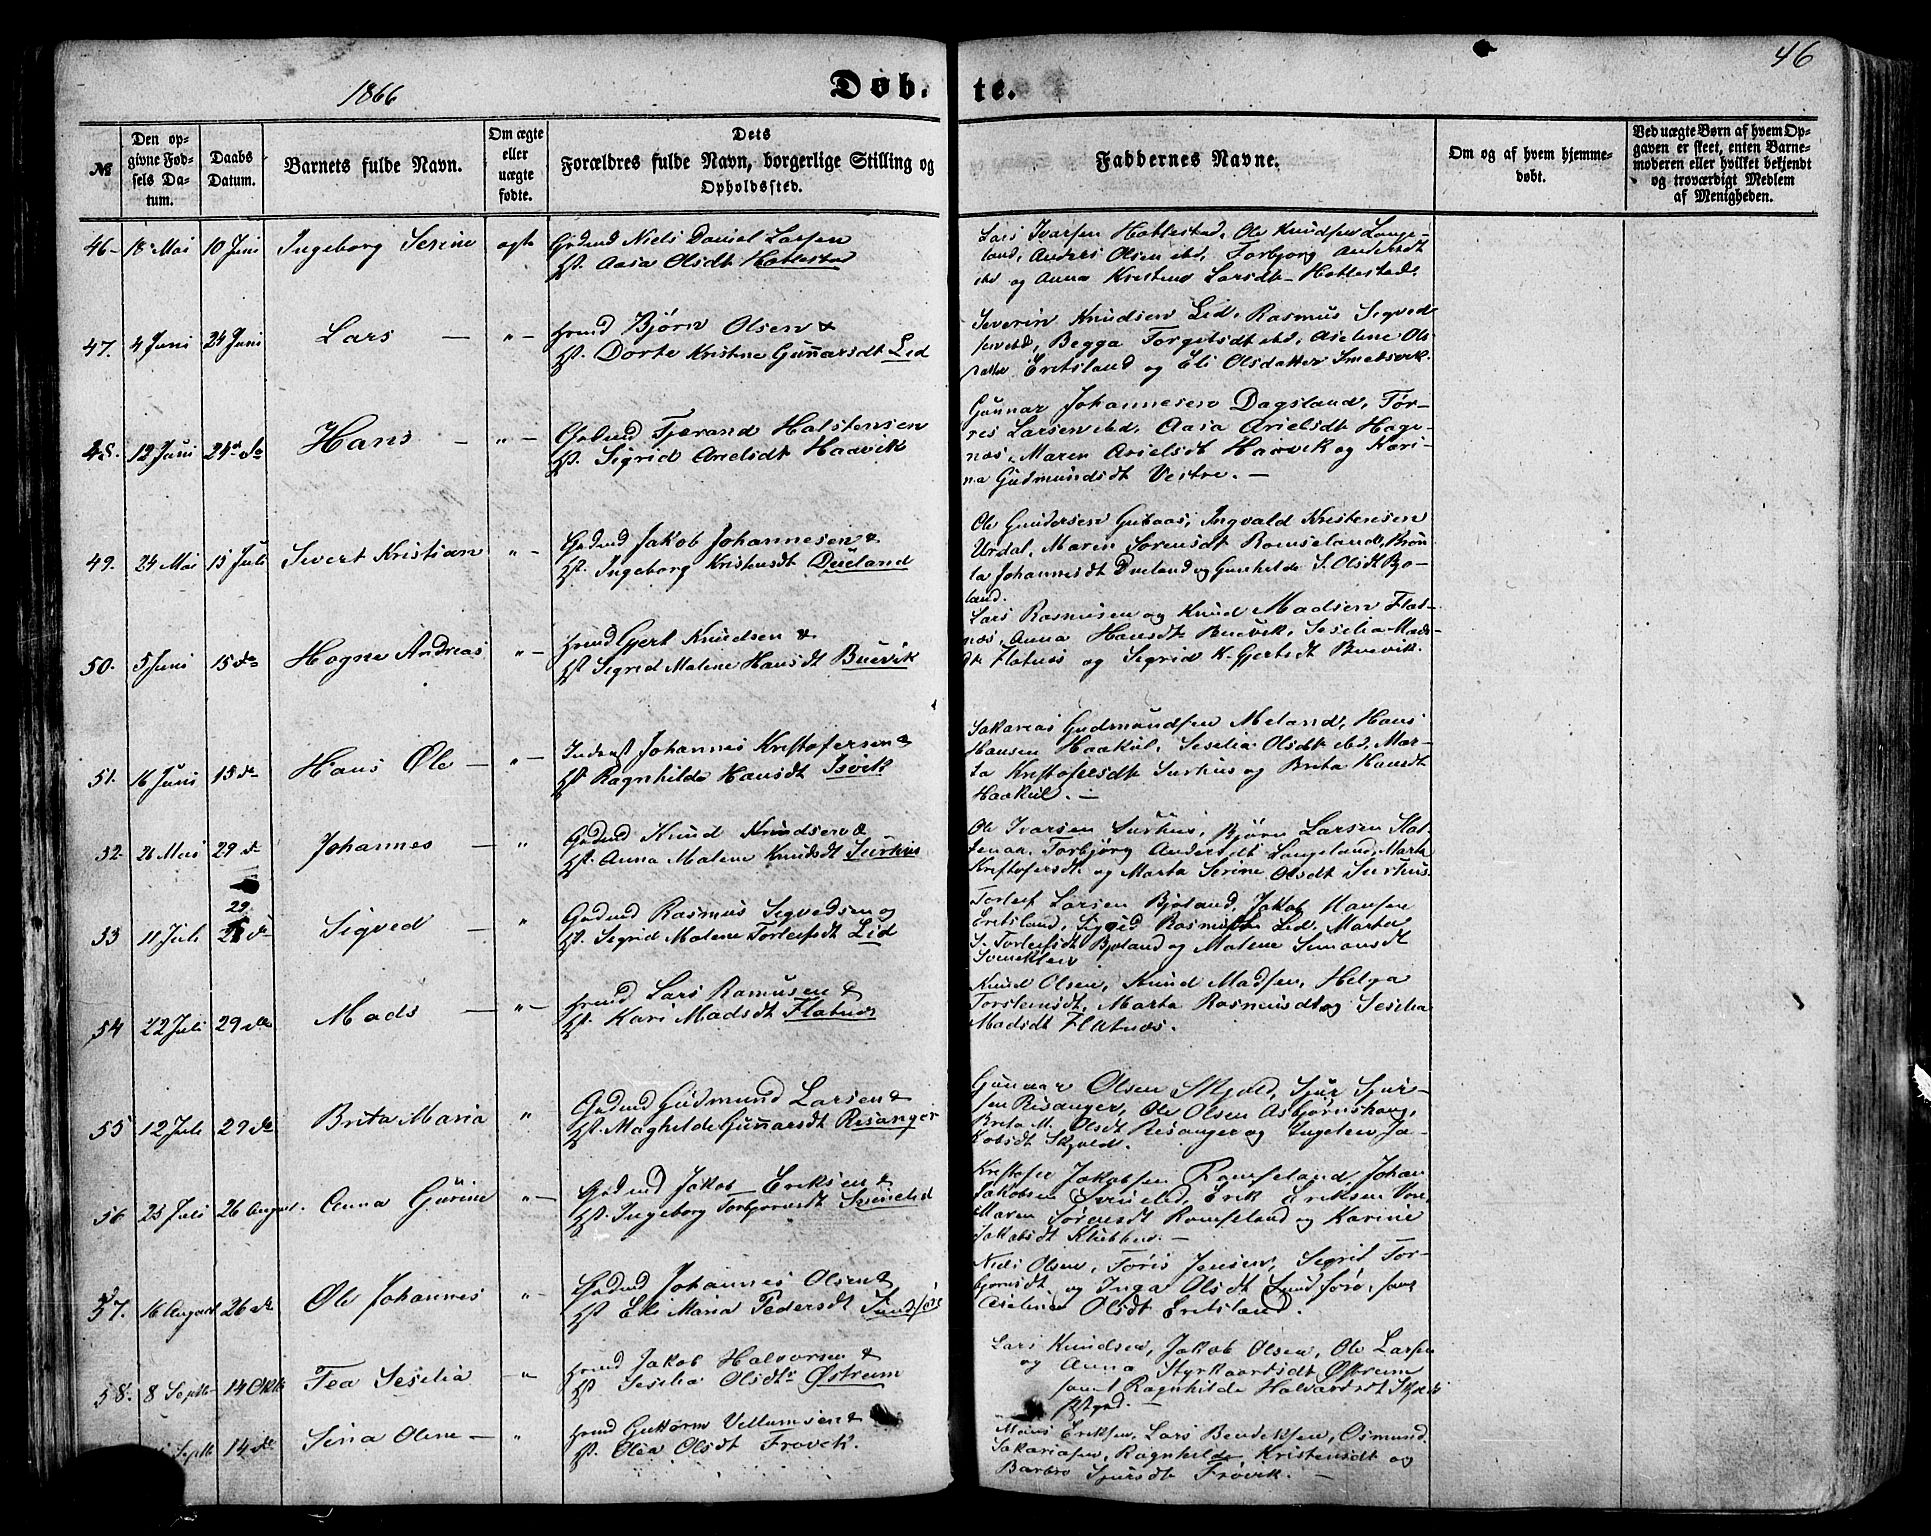 46
1866
Døb. te.
№
Den op-
givne Fød-
sels Da-
tum.
Daabs
Datum.
Barnets fulde Navn.
Om ægte
eller
uægte
fødte.
Dets
Forældres fulde Navn, borgerlige Stilling og
Opholdssted.
Faddernes Navne.
Om og af hvem hjemme-
døbt.
Ved uægte Børn af hvem Op-
gaven er skeet, enten Barne-
moderen eller hvilket bekjendt
og troværdigt Medlem
af Menigheden.
46- 18 Mai 10 Juni Ingeborg Serine ægte Gdmd Niels Daniel Larsen
Hst. Aasa Olsdt Hattestad
Lars Ivarsen Hattestad, Ole Knudsen Lange-
land, Anders Olsen ibd, Torbjorg Andersdt
ibd og Anna Kristine Larsdt Hattestad
47. 4 Juni 24 Juni Lars — „ — Hmd Bjørn Olsen &
Hst. Dorte Kristine Gunnarsdt Lid
Severin Knudsen Lid, Rasmus Sigved
sen ibd, Begga Torgelsdt ibd, Aselene Ols
datter Eretsland og Eli Olsdatter Smedsvik.
48. 12 Juni 24 do Hans — „ — Gdmd Tjerand Halstensen
Hst. Sigrid Arielsdt Haavik
Gunnar Johannesen Dagsland, Tør-
res Larsen ibd, Aasa Arielsdt Hage-
næs, Maren Arielsdt Haavik og Kari-
na Gudmundsdt Vestre. —
49. 24 Mai 15 Juli Sivert Kristian „ — Gdmd Jakob Johannesen &
Hst. Ingeborg Kristensdt Dueland
Ole Gundersen Gutaas, Ingvald Kristensen
Urdal, Maren Sørensdt Romseland,
la Johannesdt Dueland og Gunhilde S. Olsdt Bjo-
land.
50. 5 Juni 15 do Hogne Andreas „ — Hmd Gjert Knudsen &
Hst. Sigrid Malene Hansdt Buevik
Lars Rasmusen og Knud Madsen Flat-
næs, Anna Hansdt Buevik, Seselia Mads-
dt Flatnæs og Sigrid K. Gjertsdt Buevik.
51. 16 Juni 15 do Hans Ole — „ — Inderst Johannes Kristofersen &
Hst. Ragnhilde Hansdt Isvik
Sakarias Gudmundsen Meland, Hans
Hansen Haakul, Seselia Olsdt ibd, Mar-
ta Kristofersdt Surhus og Brita Hansdt
Haakul. —
52. 26 Mai 29 do Johannes — „ Gdmd Knud Knudsen &
Hst. Anna Malene Knudsdt Surhus
Ole Ivarsen Surhus, Bjørn Larsen
Torbjørg Andersdt Langeland, Marta
Kristofersdt og Marta Serine Olsdt Surhus.
53 11 Juli 29 do Sigved — „ Gdmd Rasmus Sigvedsen og
Hst. Sigrid Malene Torleifsdt Lid
Torleif Larsen Bjoland, Jakob Hansen
Eretsland, Sigved Rasmussen Lid, Marta
S. Torleifsdt Bjoland og Malene Simonsdt
54 22 Juli 29 do Mads — „ — Hmd Lars Rasmusen &
Hst. Kari Madsdt Flatnæs
Knud Olsen, Knud Madsen, Helga
Torstensdt, Marta Rasmusdt og Seselia
Madsdt Flatnæs.
55 12 Juli 29 do Brita Maria „ Gdmd Gudmund Larsen &
Hst. Maghilde Gunnarsdt Risanger
Gunnar Olsen Skjold, Sjur Sjur-
sen Risanger, Ole Olsen Asbjørnshaug,
Brita M. Olsdt Risanger og Ingelev Ja-
kobsdt Skjold.
56 23 Juli 26 August. Anna Gurine „ — Gdmd Jakob Eriksen &
Hst. Ingeborg Torbjornsdt Svinelid
Kristofer Jakobsen Romseland, Johan
Jakobsen ibd, Erik Eriksen
Maren Sørensdt Romseland og Karine
Jakobsdt —
57. 16 August 26 do Ole Johannes „ — Gdmd Johannes Olsen &
Hst. Eli Maria Pedersdt Sundfør
Niels Olsen, Jensen, Sigrid Tor-
bjornsdt og Inga Olsdt samt
Aselene Olsdt Eretsland.
58. 8 Septb 14 Oktb Tea Seselia — „ Hmd Jakob Halvorsen &
Hst. Seselia Olsdt Østrem
Lars Knudsen, Jakob Olsen, Ole Larsen
og Anna Styrkaarsdt Østreim
samt Ragnhilde Halvardsdt
Septb 14 do Sina Oline — „ Hmd Guttorm Vellumsen &
Hst. Olia Olsdt Frøvik.
Eriksen, Lars Bendiksen, Osmund
Sakariasen, Ragnhilde Kristensdt og
Barbro Sjursdt Frøvik. —